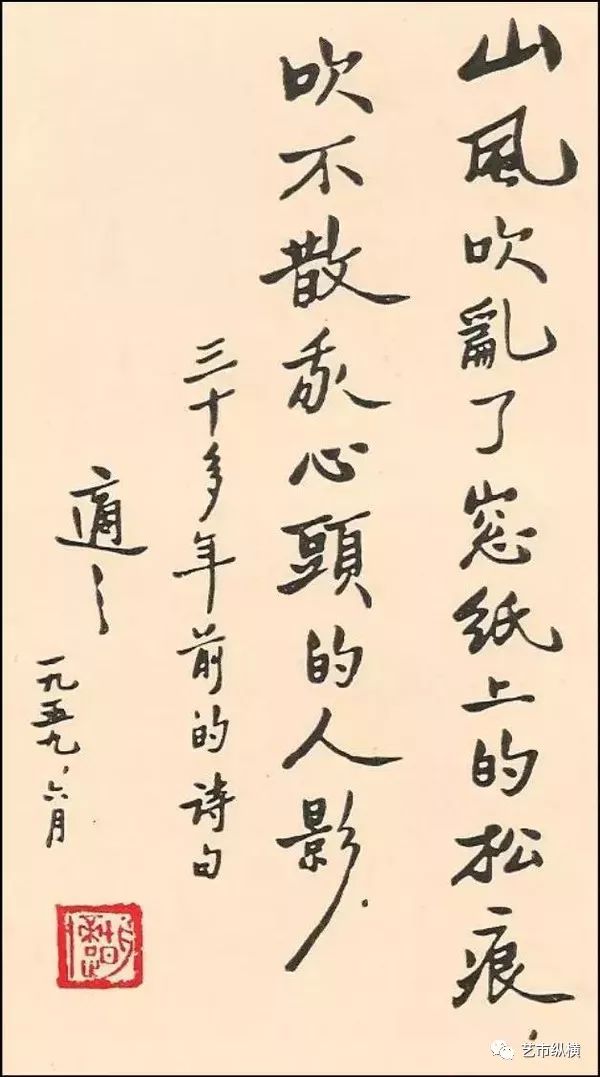 山風吹亂了窓紙上的松痕，
吹不散我心頭的人影．
三十多年前的詩句
適之
一九五九，六月
艺市纵横